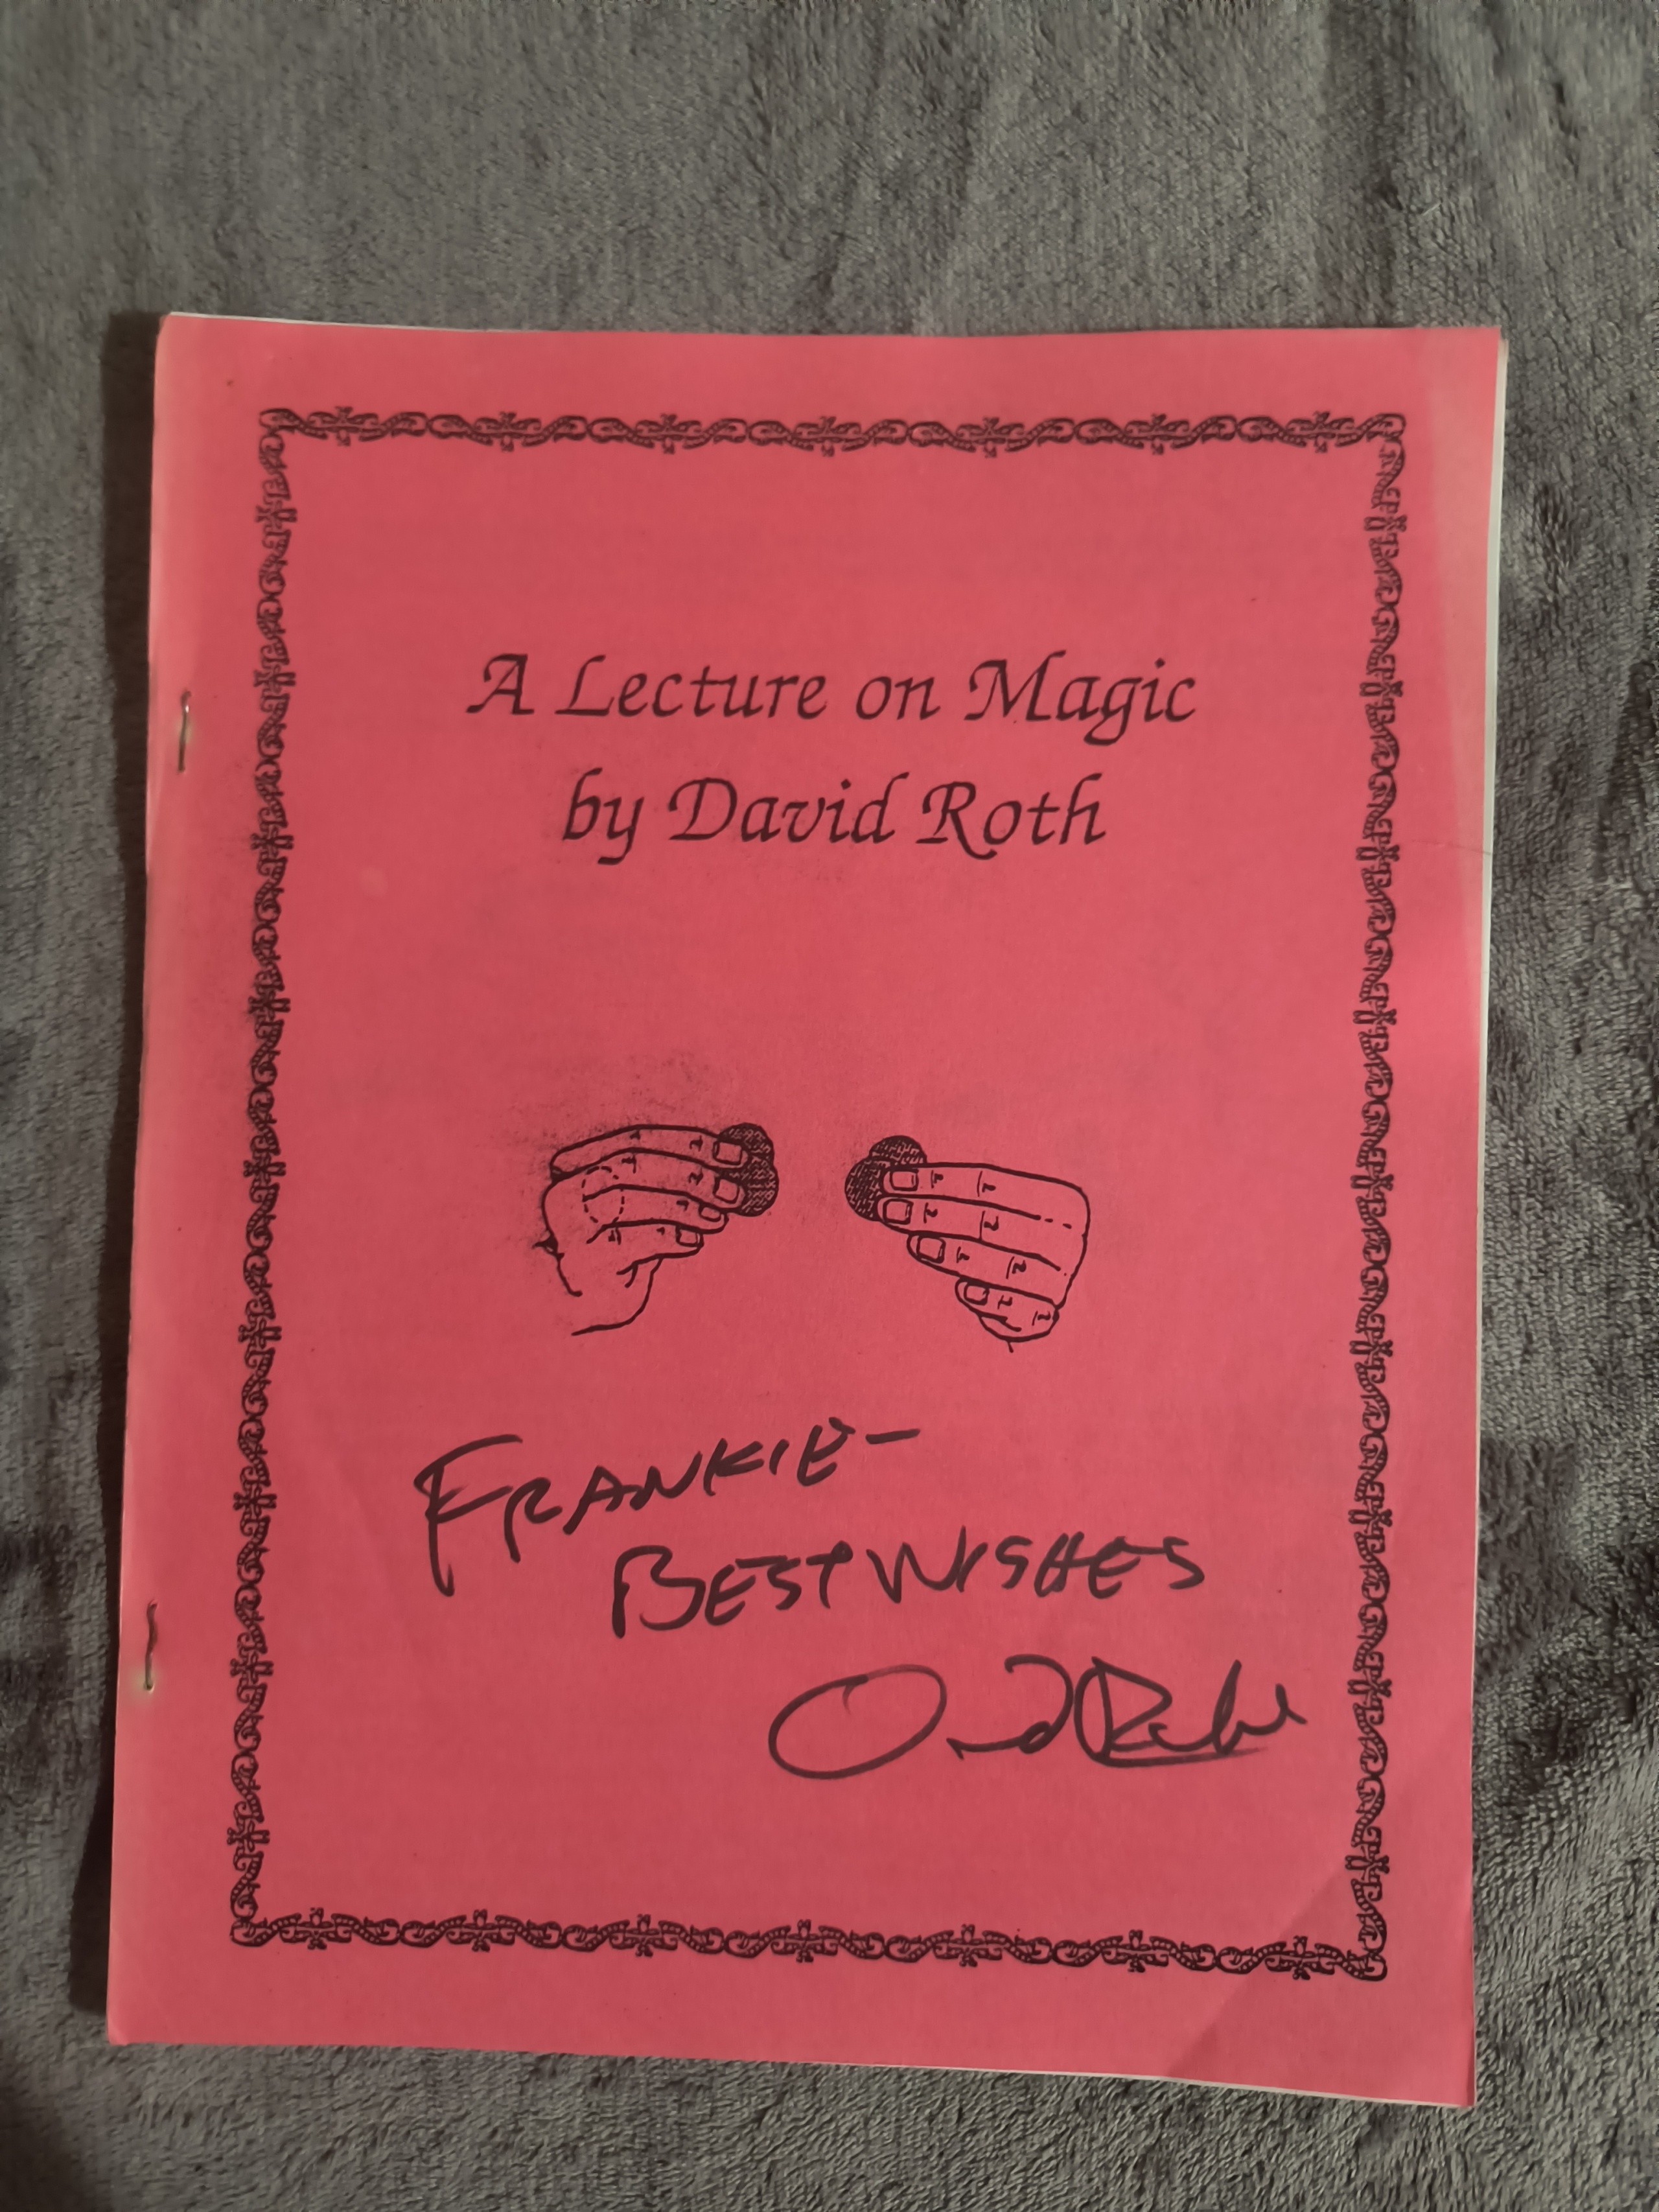 A Lecture on Magic
by David Roth
FRANKIE-
BEST WISHES
David Roth